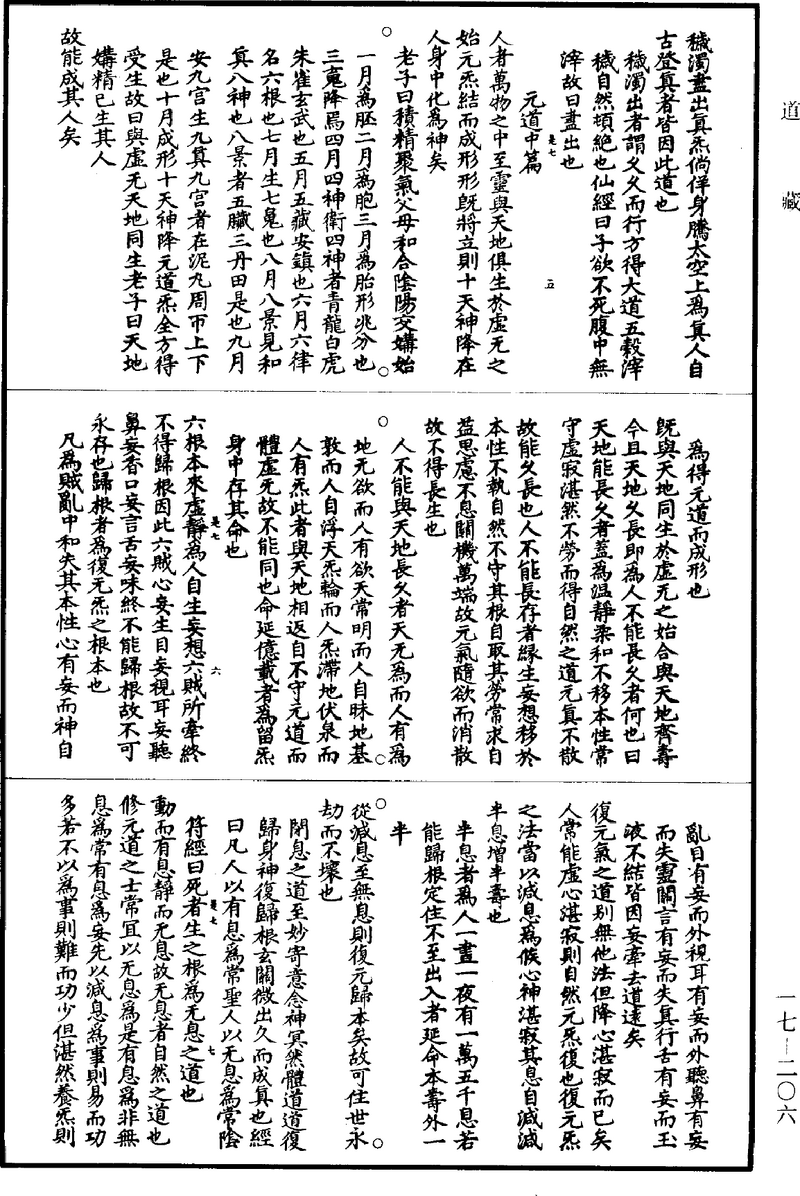 道藏
穢濁盡出真炁倘佯身騰太空上為真人自
古登真者皆因此道也
穢濁出者謂久久而行方得大道五穀滓
穢自然頓絶也仙經曰子欲不死腹中無
滓故曰盡出也
元道中篇
是七
五
人者萬物之中至靈與天地俱生於虛无之
始元炁結而成形形既將立則十天神降在
人身中化為神矣
老子曰積精聚氣父母和合陰陽交媾始
一月為胚二月為胞三月為胎形兆分也
三䰟降焉四月四神衛四神者青龍白虎
朱雀玄武也五月五藏安鎮也六月六律
名六根也七月生七䰟也八月八景見和
真八神也八景者五臟三丹田是也九月
安九宮生九真九宮者在泥丸周帀上下
是也十月成形十天神降元道炁全方得
受生故曰與虛无天地同生老子曰天地
媾精已生其人
故能成其人矣
為得元道而成形也
既與天地同生於虛无之始合與天地齊壽
今且天地久長即為人不能長久者何也曰
天地能長久者蓋為溫靜柔和不移本性常
守虛寂湛然不勞而得自然之道元真不散
故能久長也人不能長存者緣生妄想移於
本性不執自然不守其根自取其勞常求自
益思慮不息關機萬端故元氣隨欲而消散
故不得長生也
人不能與天地長久者天无為而人有為
地无欲而人有欲天常明而人自昧地基
敦而人自浮天炁輪而人炁滯地伏泉而
人有炁此者與天地相返自不守元道而
體虛无故不能同也命延億載者為留炁
身中存其命也
是七
六
六根本來虛靜為人自生妄想六賊所牽終
不得歸根因此六賊心妄生目妄視耳妄聽
鼻妄香口妄言舌妄味終不能歸根故不可
永存也歸根者為復元炁之根本也
凡為賊亂中和失其本性心有妄而神自
亂目有妄而外視耳有妄而外聽鼻有妄
而失靈關言有妄而失真行舌有妄而玉
液不結皆因妄牽去道遠矣
復元氣之道别無他法但降心湛寂而已矣
人常能虛心湛寂則自然元炁復也復元炁
之法當以減息為候心神湛寂其息自減減
半息增半壽也
半息者為人一晝一夜有一萬五千息若
能歸根定住不至出入者延命本壽外一
半
從減息至無息則復元歸本矣故可住世永
劫而不壞也
閉息之道至妙寄意念神冥然體道道復
歸身神復歸根玄關微出久而成真也經
曰凡人以有息為常聖人以无息為常陰
符經曰死者生之根為无息之道也
是七
七
動而有息靜而无息故无息者自然之道也
修元道之士常宜以无息為是有息為非無
息為常有息為妄先以減息為事則易而功
多若不以為事則難而功少但湛然養炁則
一七-二〇六